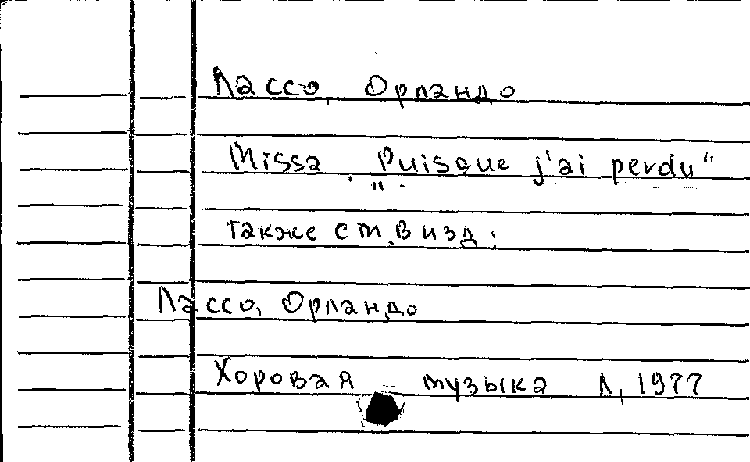 Лассо, Орландо
Missa „Puisque j'ai perdu"
также см. в изд.:
Лассо, Орландо
Хоровая музыка Л, 1977